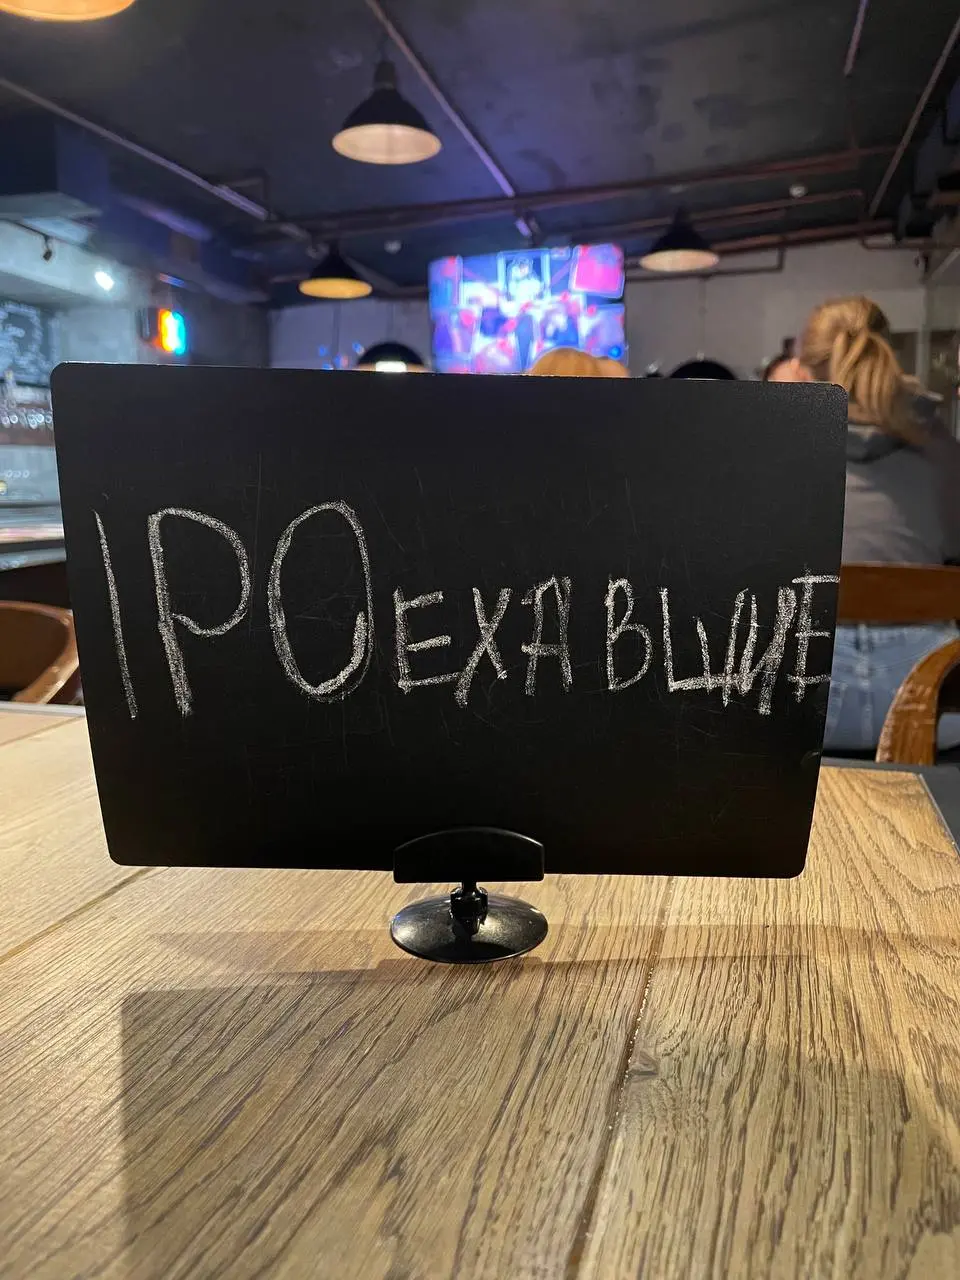 IPOЕХАВШИЕ